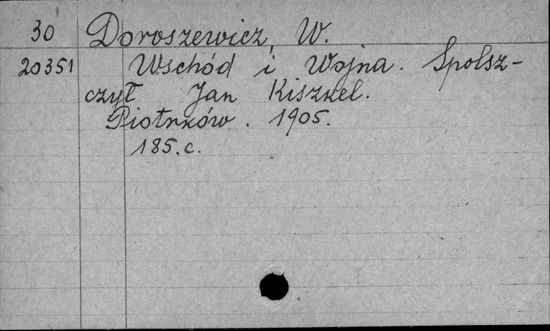 30 Doroszewicz, W.
20351 Wschód i Wojna. Spolsz-
czył Jan Kiszkel.
Piotrków. 1905.
185.c.